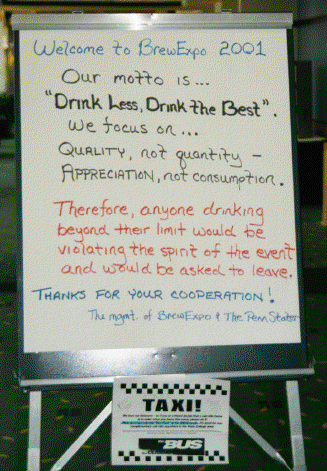 Welcome to BrewExpo 2001
Our motto is...
"Drink Less, Drink the Best".
We focus on...
QUALITY, not quantity –
APPRECIATION, not consumption.
Therefore, anyone drinking
beyond their limit would be
violating the spirit of the event
and would be asked to leave.
THANKS FOR YOUR COOPERATION!
The mgmt. of BrewExpo & The Penn Stater
TAXI!
THE BUS